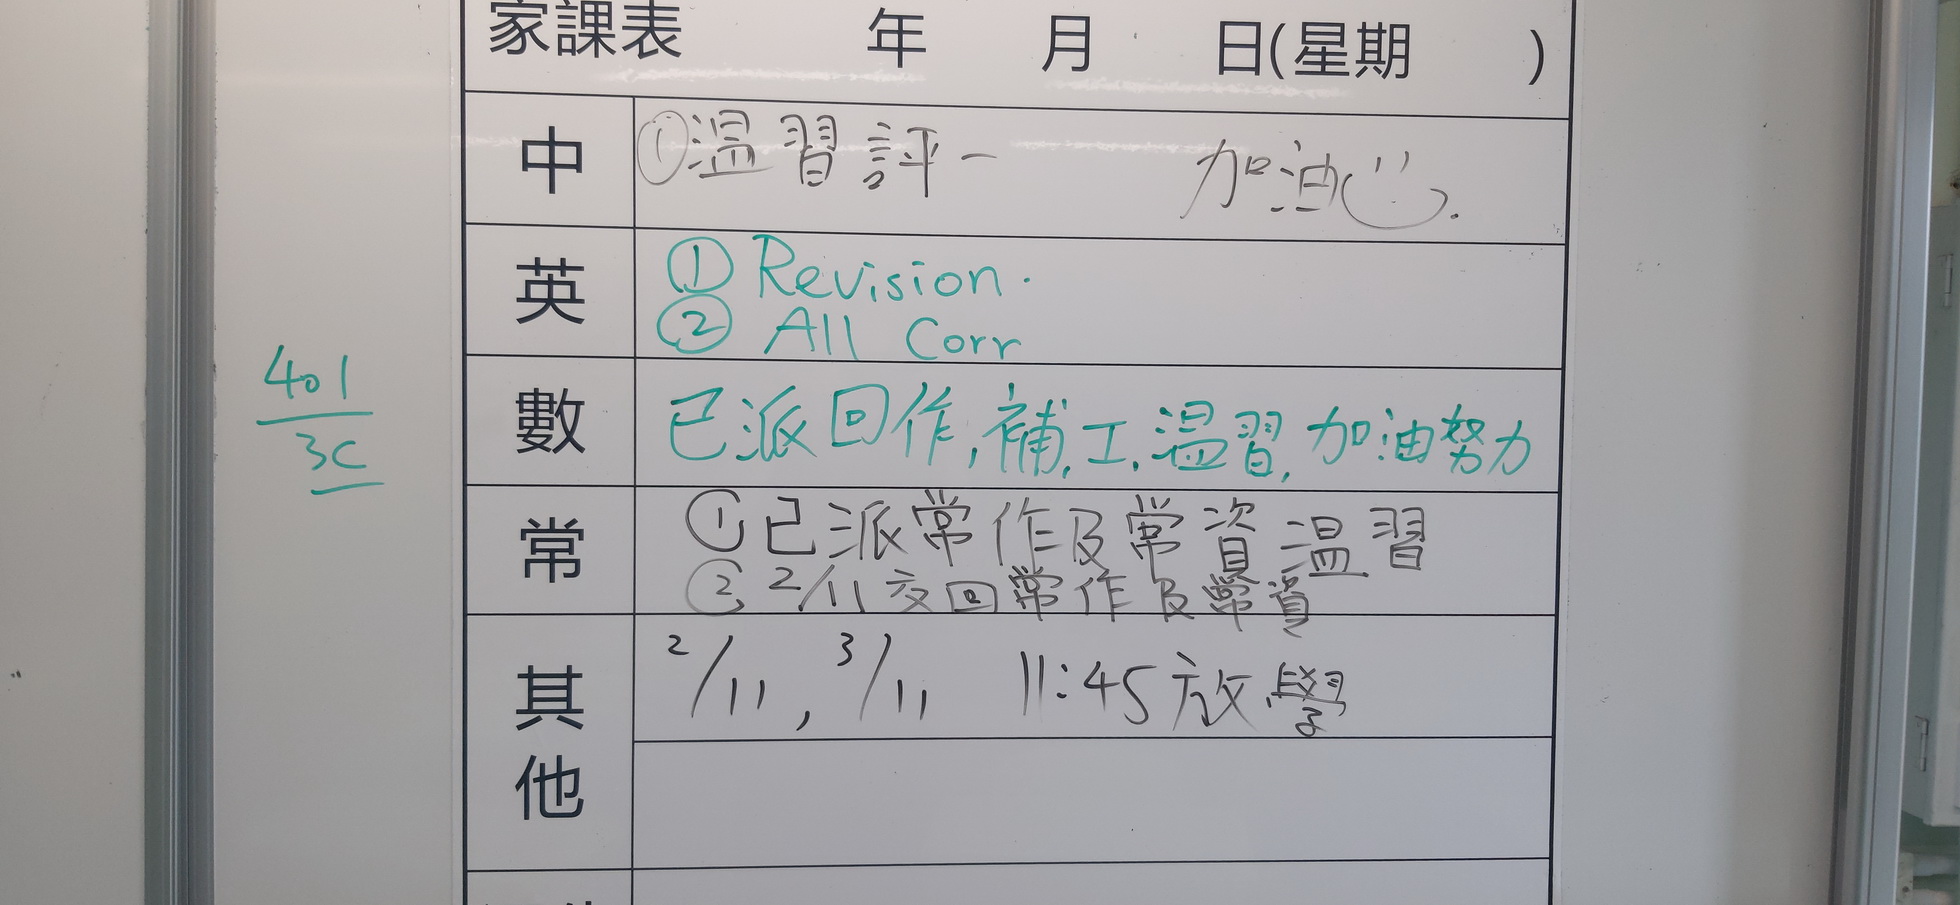 家課表 年 月 日(星期 )
中 ①溫習評一 加油
英 ① Revision.
② All Corr
401
3C
數 已派回作,補,工,溫習,加油努力
常 ①已派常作及常資溫習
② 2/11交回常作及常資
其他 2/11, 3/11 11:45放學